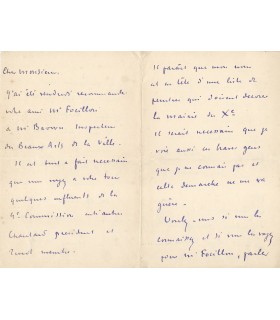 Cher Monsieur,
J'ai été vendredi recommandé
votre ami Mr Focillon
à Mr Brown Inspecteur
des Beaux Arts de la Ville.
Il est tout à fait nécessaire
que vous voyez à votre tour
quelques influents de la
4e Commission
président et
membre.
Il paraît que mon nom
est en tête d'une liste de
peintres qui doivent décorer
la mairie du Xe
Il serait nécessaire que je
vois aussi ces braves gens
que je ne connais pas et
cette démarche ne me va
guère.
Voulez-vous si vous les
connaissez et si vous les voyez
pour Mr Focillon, parler